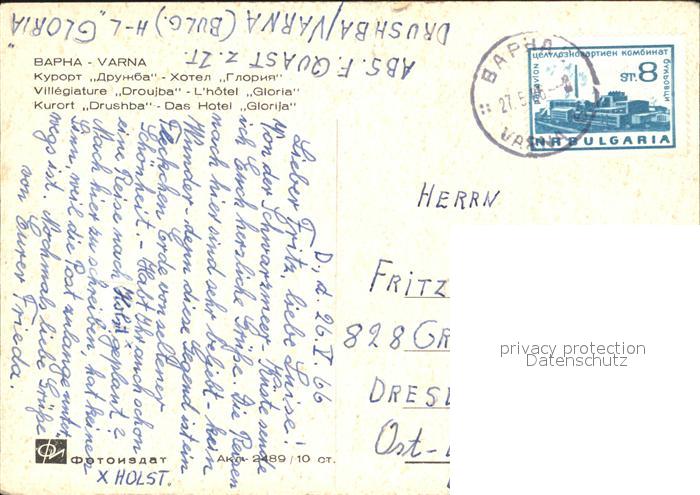 ABS. F. QUAST z. Zt.
DRUSHBA/VARNA (BULG.) H-L „GLORIA"
ВАРНА - VARNA
Курорт „Дружба" - Хотел „Глория"
Villégiature „Droujba" - L'hôtel „Gloria"
Kurort „Drushba" - Das Hotel „Glorija"
D., d. 26. V. 66
Lieber Fritz, liebe Luise!
Von der Schwarzmeer-Küste sende
ich Euch herzliche Grüße. Die Reisen
nach hier sind sehr beliebt - kein
Wunder - denn diese Gegend ist ein
Fleckchen Erde von seltener
Schönheit. - Habt Ihr auch schon
eine Reise nach Holst.x geplant?
Nach hier zu schreiben, hat keinen
Sinn, weil die Post zu lange unter-
wegs ist. Nochmals liebe Grüße
von Eurer Frieda.
x HOLST.
Фотоиздат
Акл-2489/10 ст.
ВАРНА
27.5.66
VARNA
par avion
целулозно хартиен комбинат
ST. 8
NR BULGARIA
HERRN
FRITZ
828 GR
DRESD
Ost-
privacy protection
Datenschutz